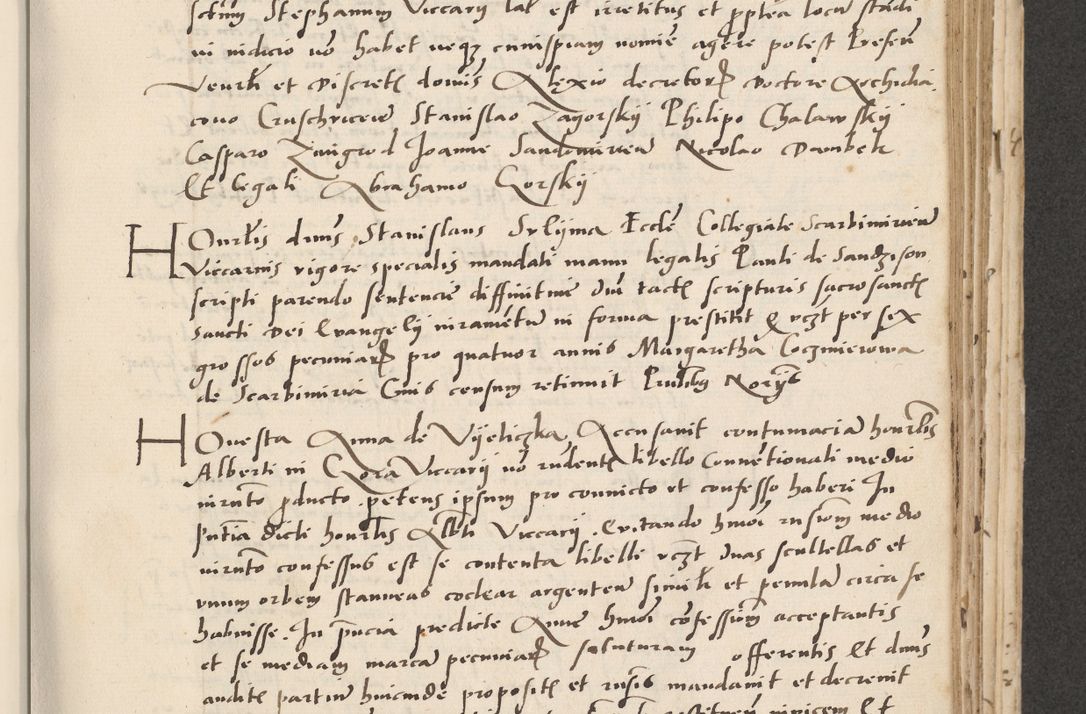 sctum Stephanum Viccarij lat est irretitus et proptea locum standi
in iudicio non habet neqz cuiuspiam nomine agere potest Presen
Venerli et Discretis dominis Alexio decretorum Doctore Archidia
cono Cruschviceien Stanislao Zagorskij Philipo Chalawskij
Casparo Zmigrod Joanne Sandomirien Nicolao Dambek
Et legali Abrahamo Gorskij
Honrlis dnus Stanislaus Srlijma Eccle Collegiate Scarbimirien
Viccarius vigore specialis mandati manu legalis Pauli de Sandzison
scripti parendo sententie diffinitiue Dni tactis scripturis sacrosanctis
Sancti Dei Evangelij iuramentum in forma prestitit q vczt per sex
grossos pecuniarum pro quatuor annis Margaretha Coczmierowa
de Scarbimiria Cuius censum retinuit Pntibus Norijs
Honesta Anna de Vijeliczka Accusavit contumaciam honrlis
Alberti in Gora Viccarij non rndentis libello Conventionali medio
iurnto pducto petens ipsum pro convicto et confesso haberi In
Pntia dicti honrlis Alberti Viccarij Evitando hmoi rusionem medio
iurnto confessus est se contenta libelli vczt duas scultellas et
unum orbem stanneas coclear argenteum similr et penulam circa se
habuisse. In pncia predicte Anne hmoi cofessionem acceptantis
et se mediam marcam pecuniarum soluturam offerentis Et dnus
auditis partium huicinde propositis et rusis mandavit et decrevit
invicem Et